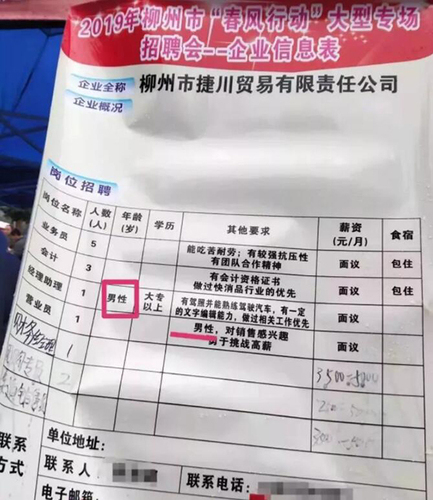 2019年柳州市“春风行动”大型专场
招聘会--企业信息表
企业全称 柳州市捷川贸易有限责任公司
企业概况
岗位招聘
岗位名称 人数(人) 年龄(岁) 学历 其他要求 薪资(元/月) 食宿
业务员 5 能吃苦耐劳；有较强抗压性 面议 包住
有团队合作精神
会计 3 有会计资格证书 面议 包住
做过快消品行业的优先
经理助理 1 男性 大专以上 有驾照并能熟练驾驶汽车，有一定 面议 包住
的文字编辑能力，做过相关工作优先
营业员 1 男性，对销售感兴趣 面议
勇于挑战高薪
财务经理 1 3500-5000
2
单位地址：
联系方式
联系人：
联系电话：
电子邮箱：